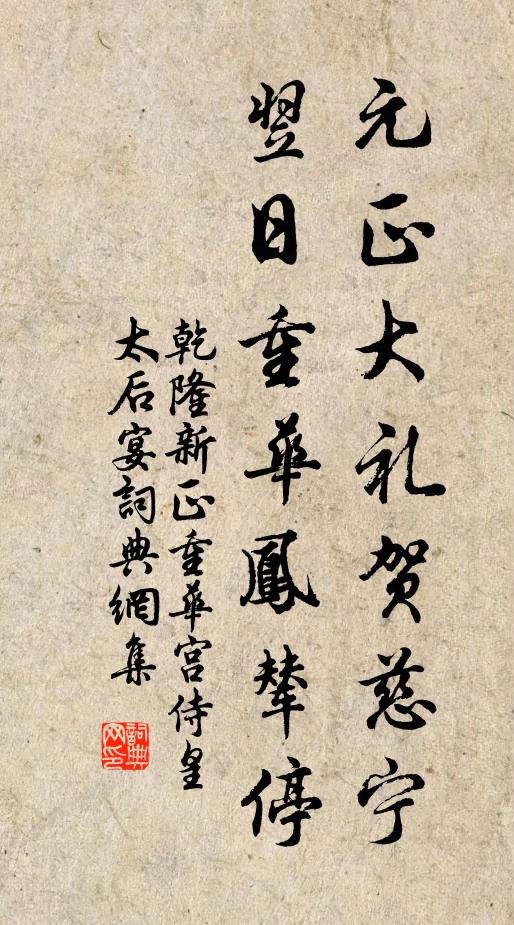 元正大礼贺慈宁
翌日重華鳳輦停
乾隆新正重華宫侍皇
太后宴詞典網集
詞典
网印